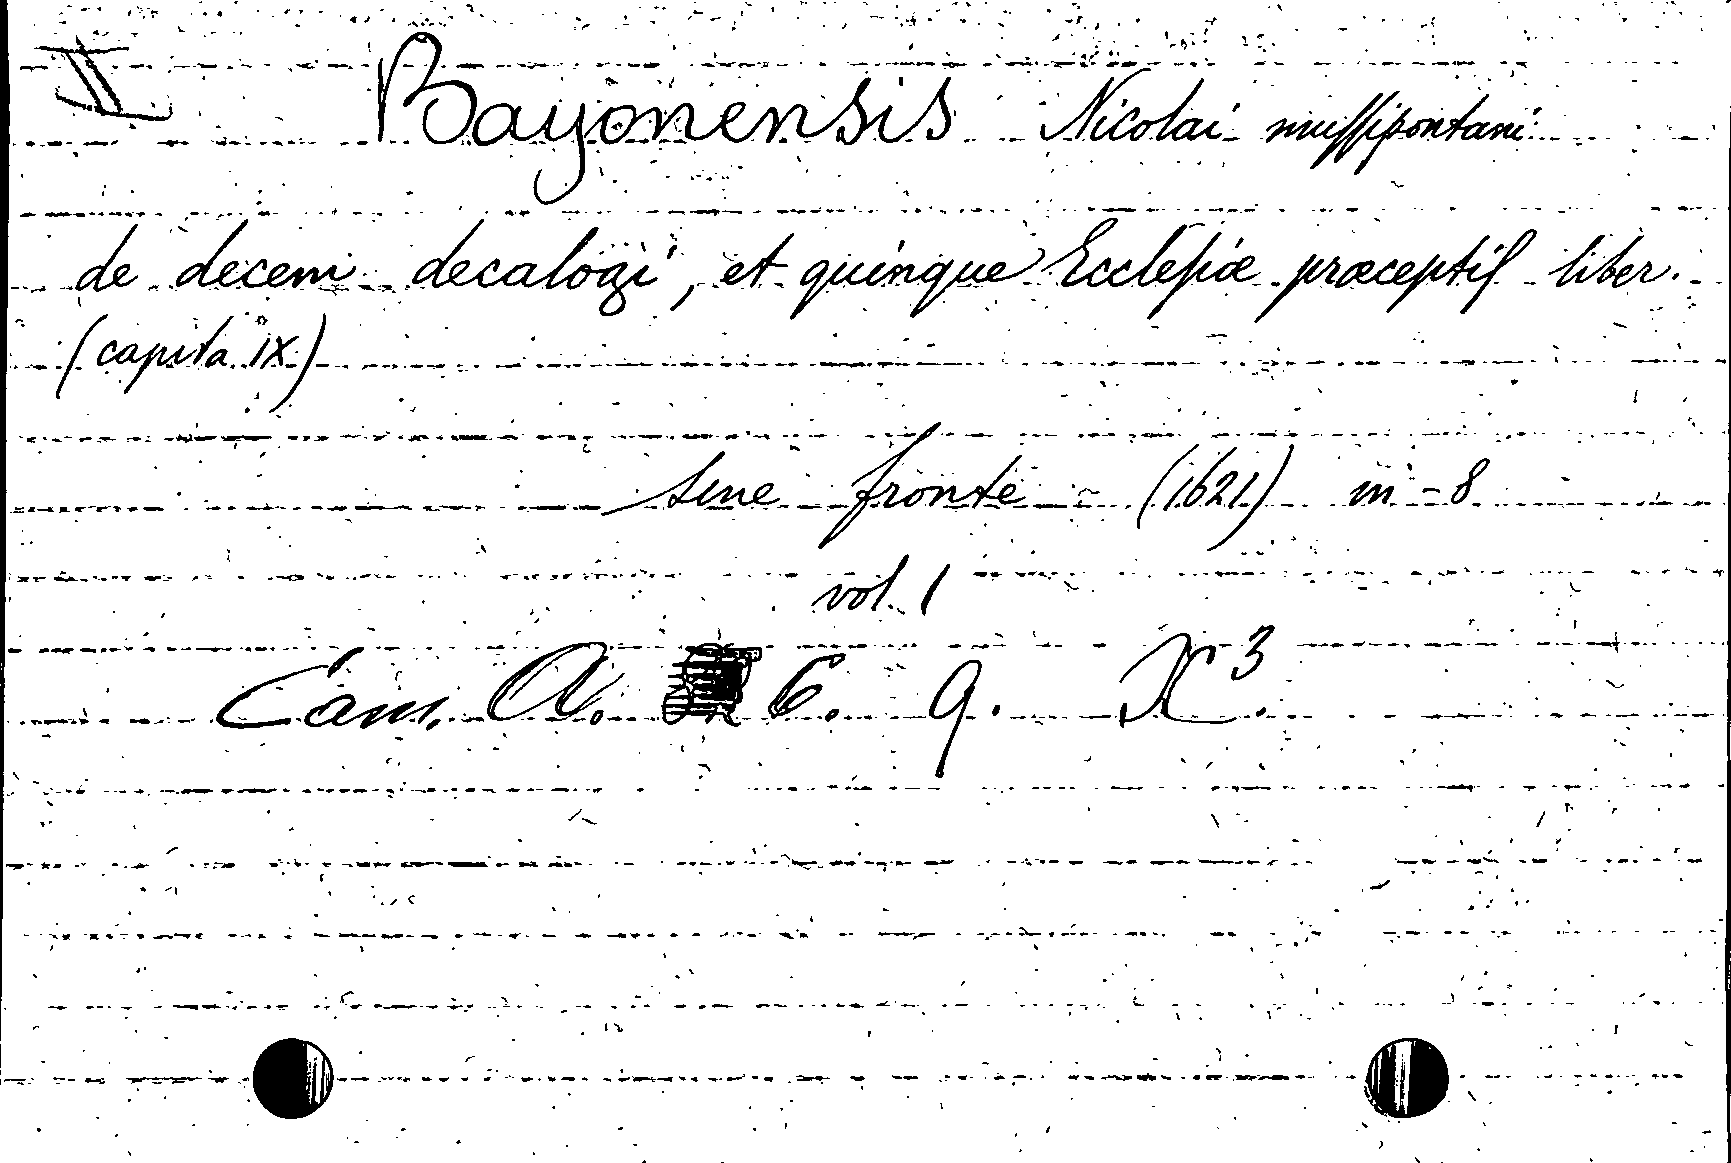 II Bayonensis Nicolai mussipontani
de decem decalogi, et quinque Ecclesiæ præceptis liber.
(capita IX)
sine fronte - (1621) in-8
vol. 1
Cam. A. 6. 9. X³.